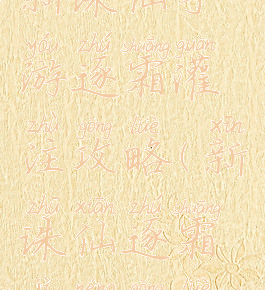 新诛仙手
yóu zhú shuāng guàn
游逐霜灌
zhù gōng lüè xīn
注攻略（新
zhū xiān zhú shuāng
诛仙逐霜